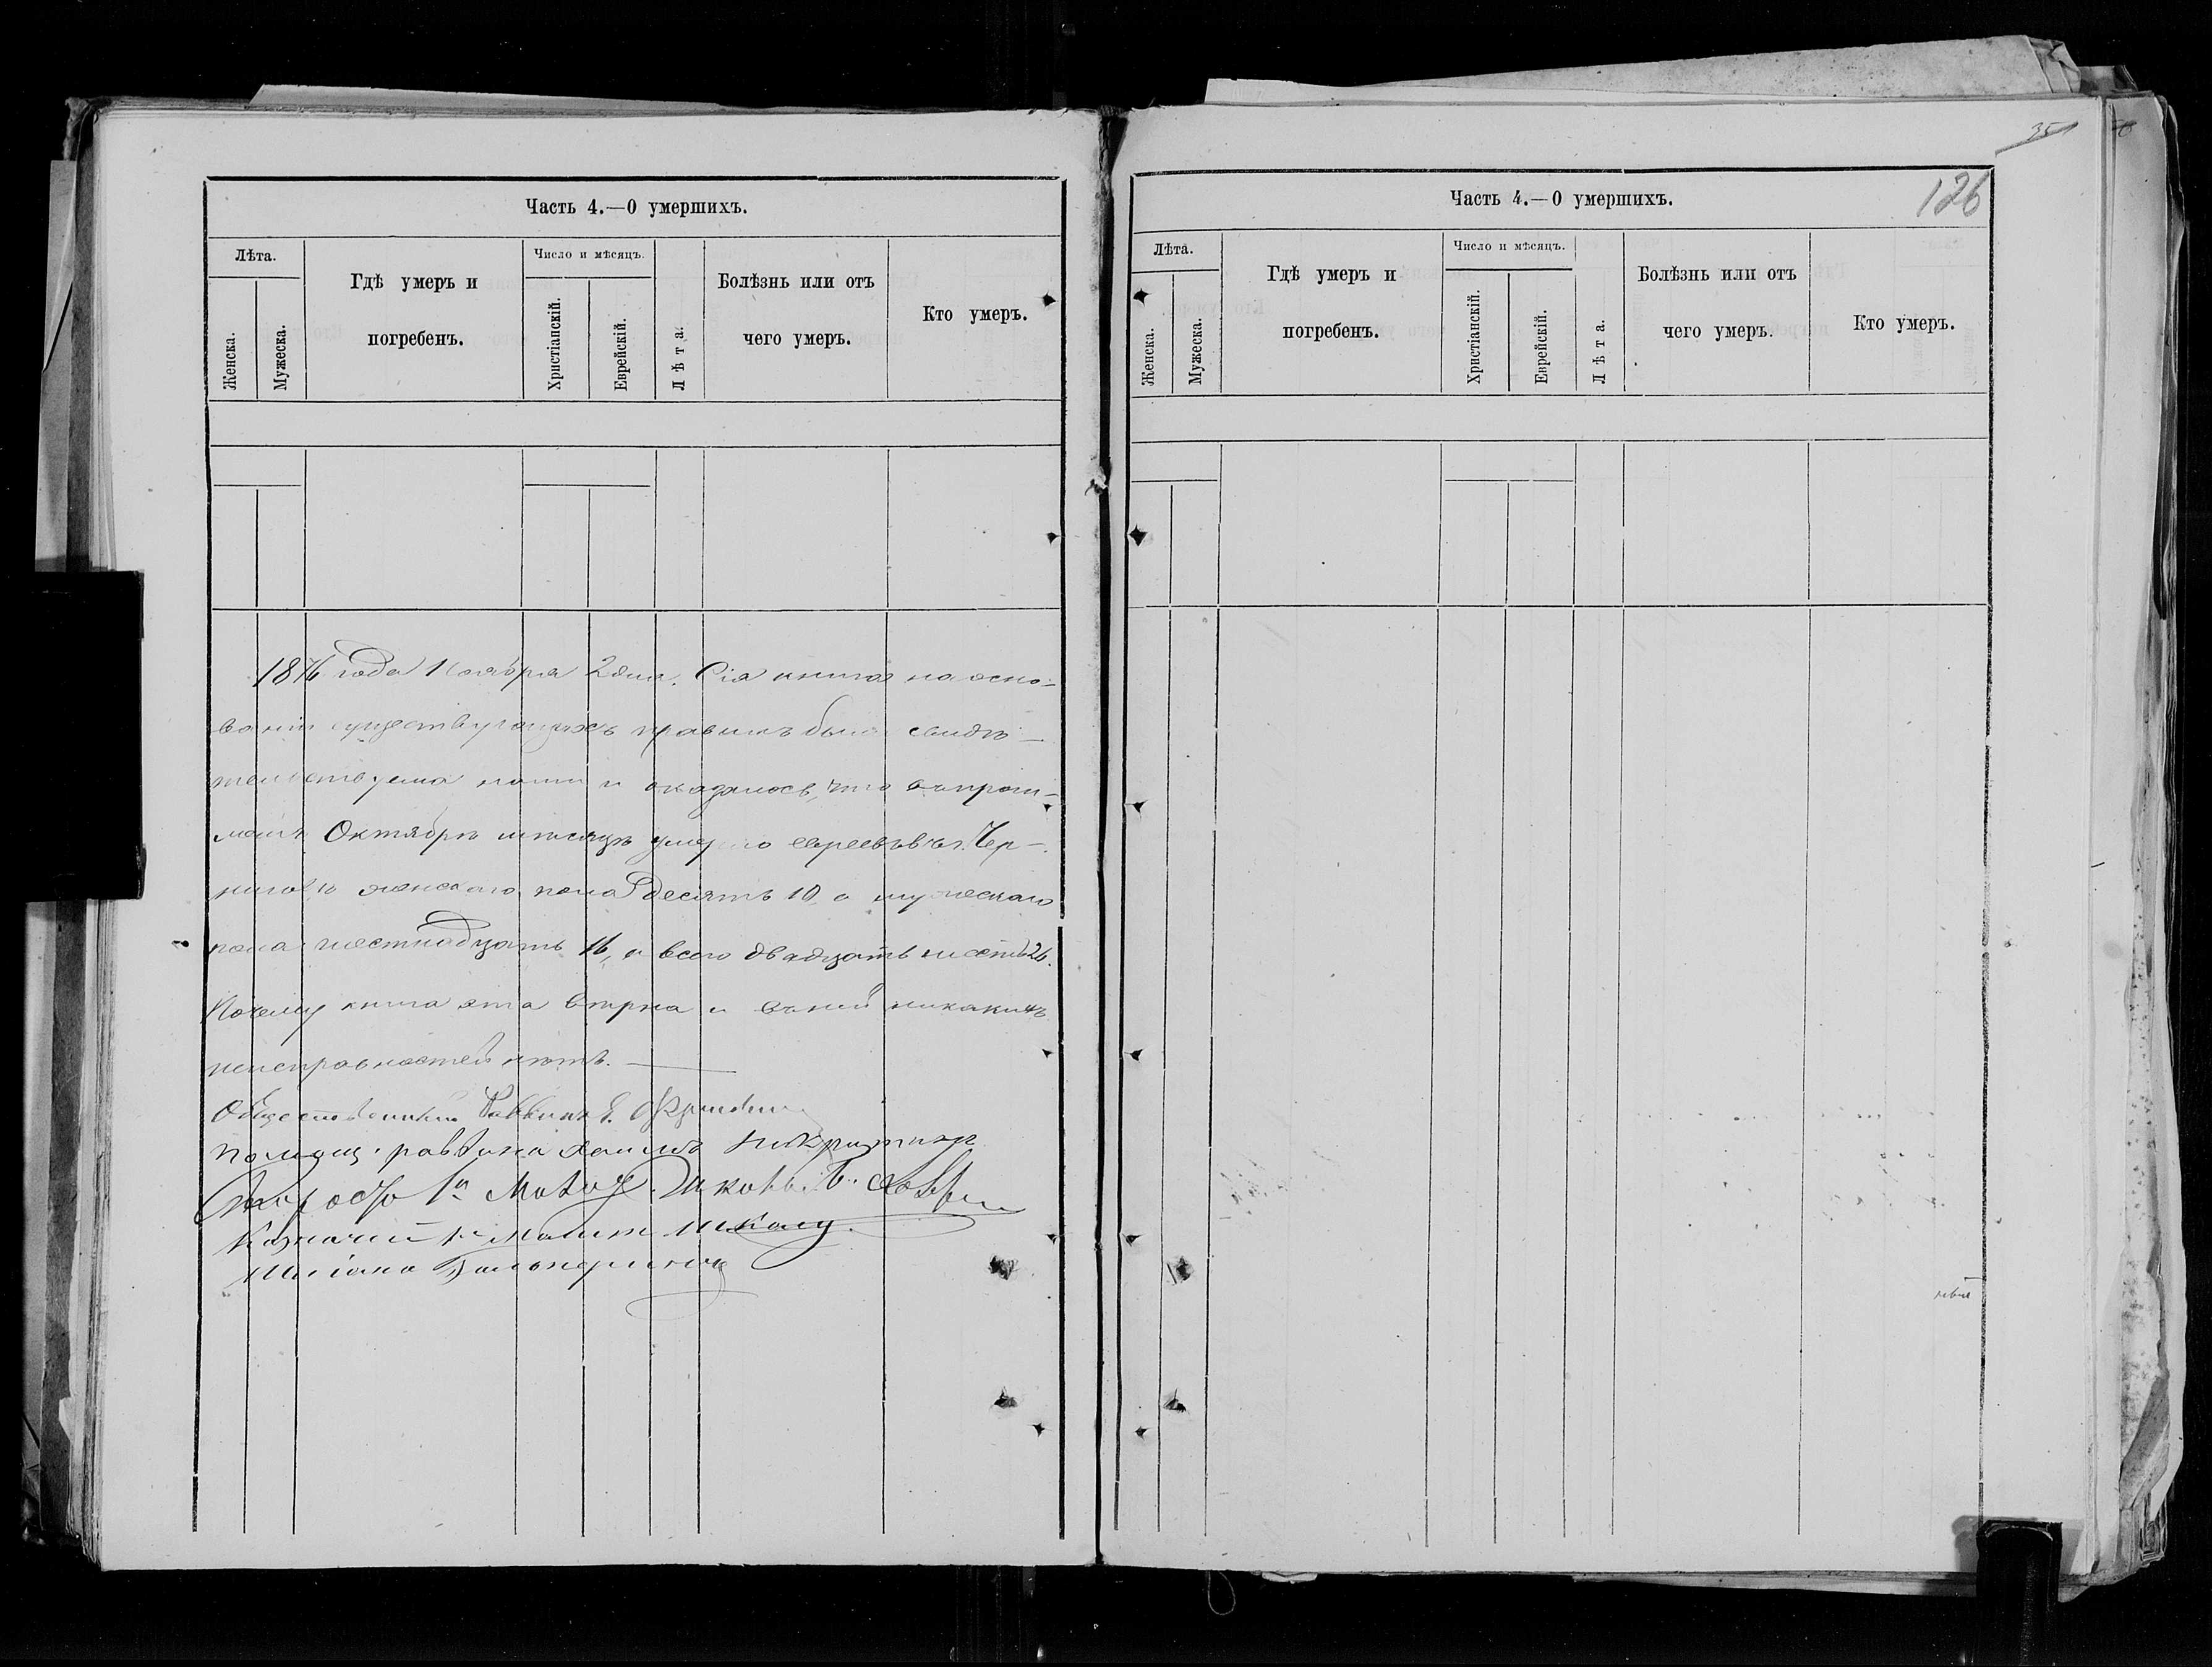 Часть 4.—О умершихъ.
Лѣта.
Женска.
Мужеска.
Гдѣ умеръ и
погребенъ.
Число и мѣсяцъ.
Христіанскій.
Еврейскій.
Лѣта.
Болѣзнь или отъ
чего умеръ.
Кто умеръ.
1876 года Ноября 2 дня. Сія книга на осно-
ваніи существующихъ правилъ была свидѣ-
тельствуема нами и оказалось, что въ прош-
ломъ Октябрѣ мѣсяцѣ умерло евреевъ въ г. Чер-
нигов женскаго пола десять 10 а мужескаго
пола шестнадцать 16, а всего двадцать шесть 26.
Почему книга эта вѣрна и въ ней никакихъ
неисправностей нѣтъ.
Общественный Раввинъ
Помощ. раввина
Староста 1й Молит.
Казначей 1й Молит.
351
126
Часть 4.—О умершихъ.
Лѣта.
Женска.
Мужеска.
Гдѣ умеръ и
погребенъ.
Число и мѣсяцъ.
Христіанскій.
Еврейскій.
Лѣта.
Болѣзнь или отъ
чего умеръ.
Кто умеръ.